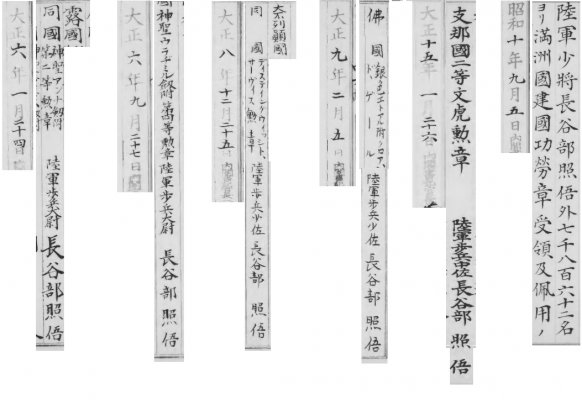 陸軍少將長谷部照俉外七千八百六十二名
ヨリ滿洲國建國功勞章受領及佩用ノ
昭和十年九月五日
支那國二等文虎勳章　陸軍步兵中佐長谷部照俉
大正十五年一月二十六日
佛國　銀色エトアル附クロアドゲール　陸軍步兵少佐長谷部照俉
大正九年二月五日
英吉利國
同國　ディスティングウィッシト、サーヴィス勳章　陸軍步兵少佐長谷部照俉
大正八年十二月二十五日
同國神聖ウラヂミル劍附第四等勳章陸軍步兵大尉長谷部照俉
大正六年九月二十七日
露國
同國　神聖アンナ劍附第二等勳章　陸軍步兵大尉長谷部照俉
大正六年一月二十四日